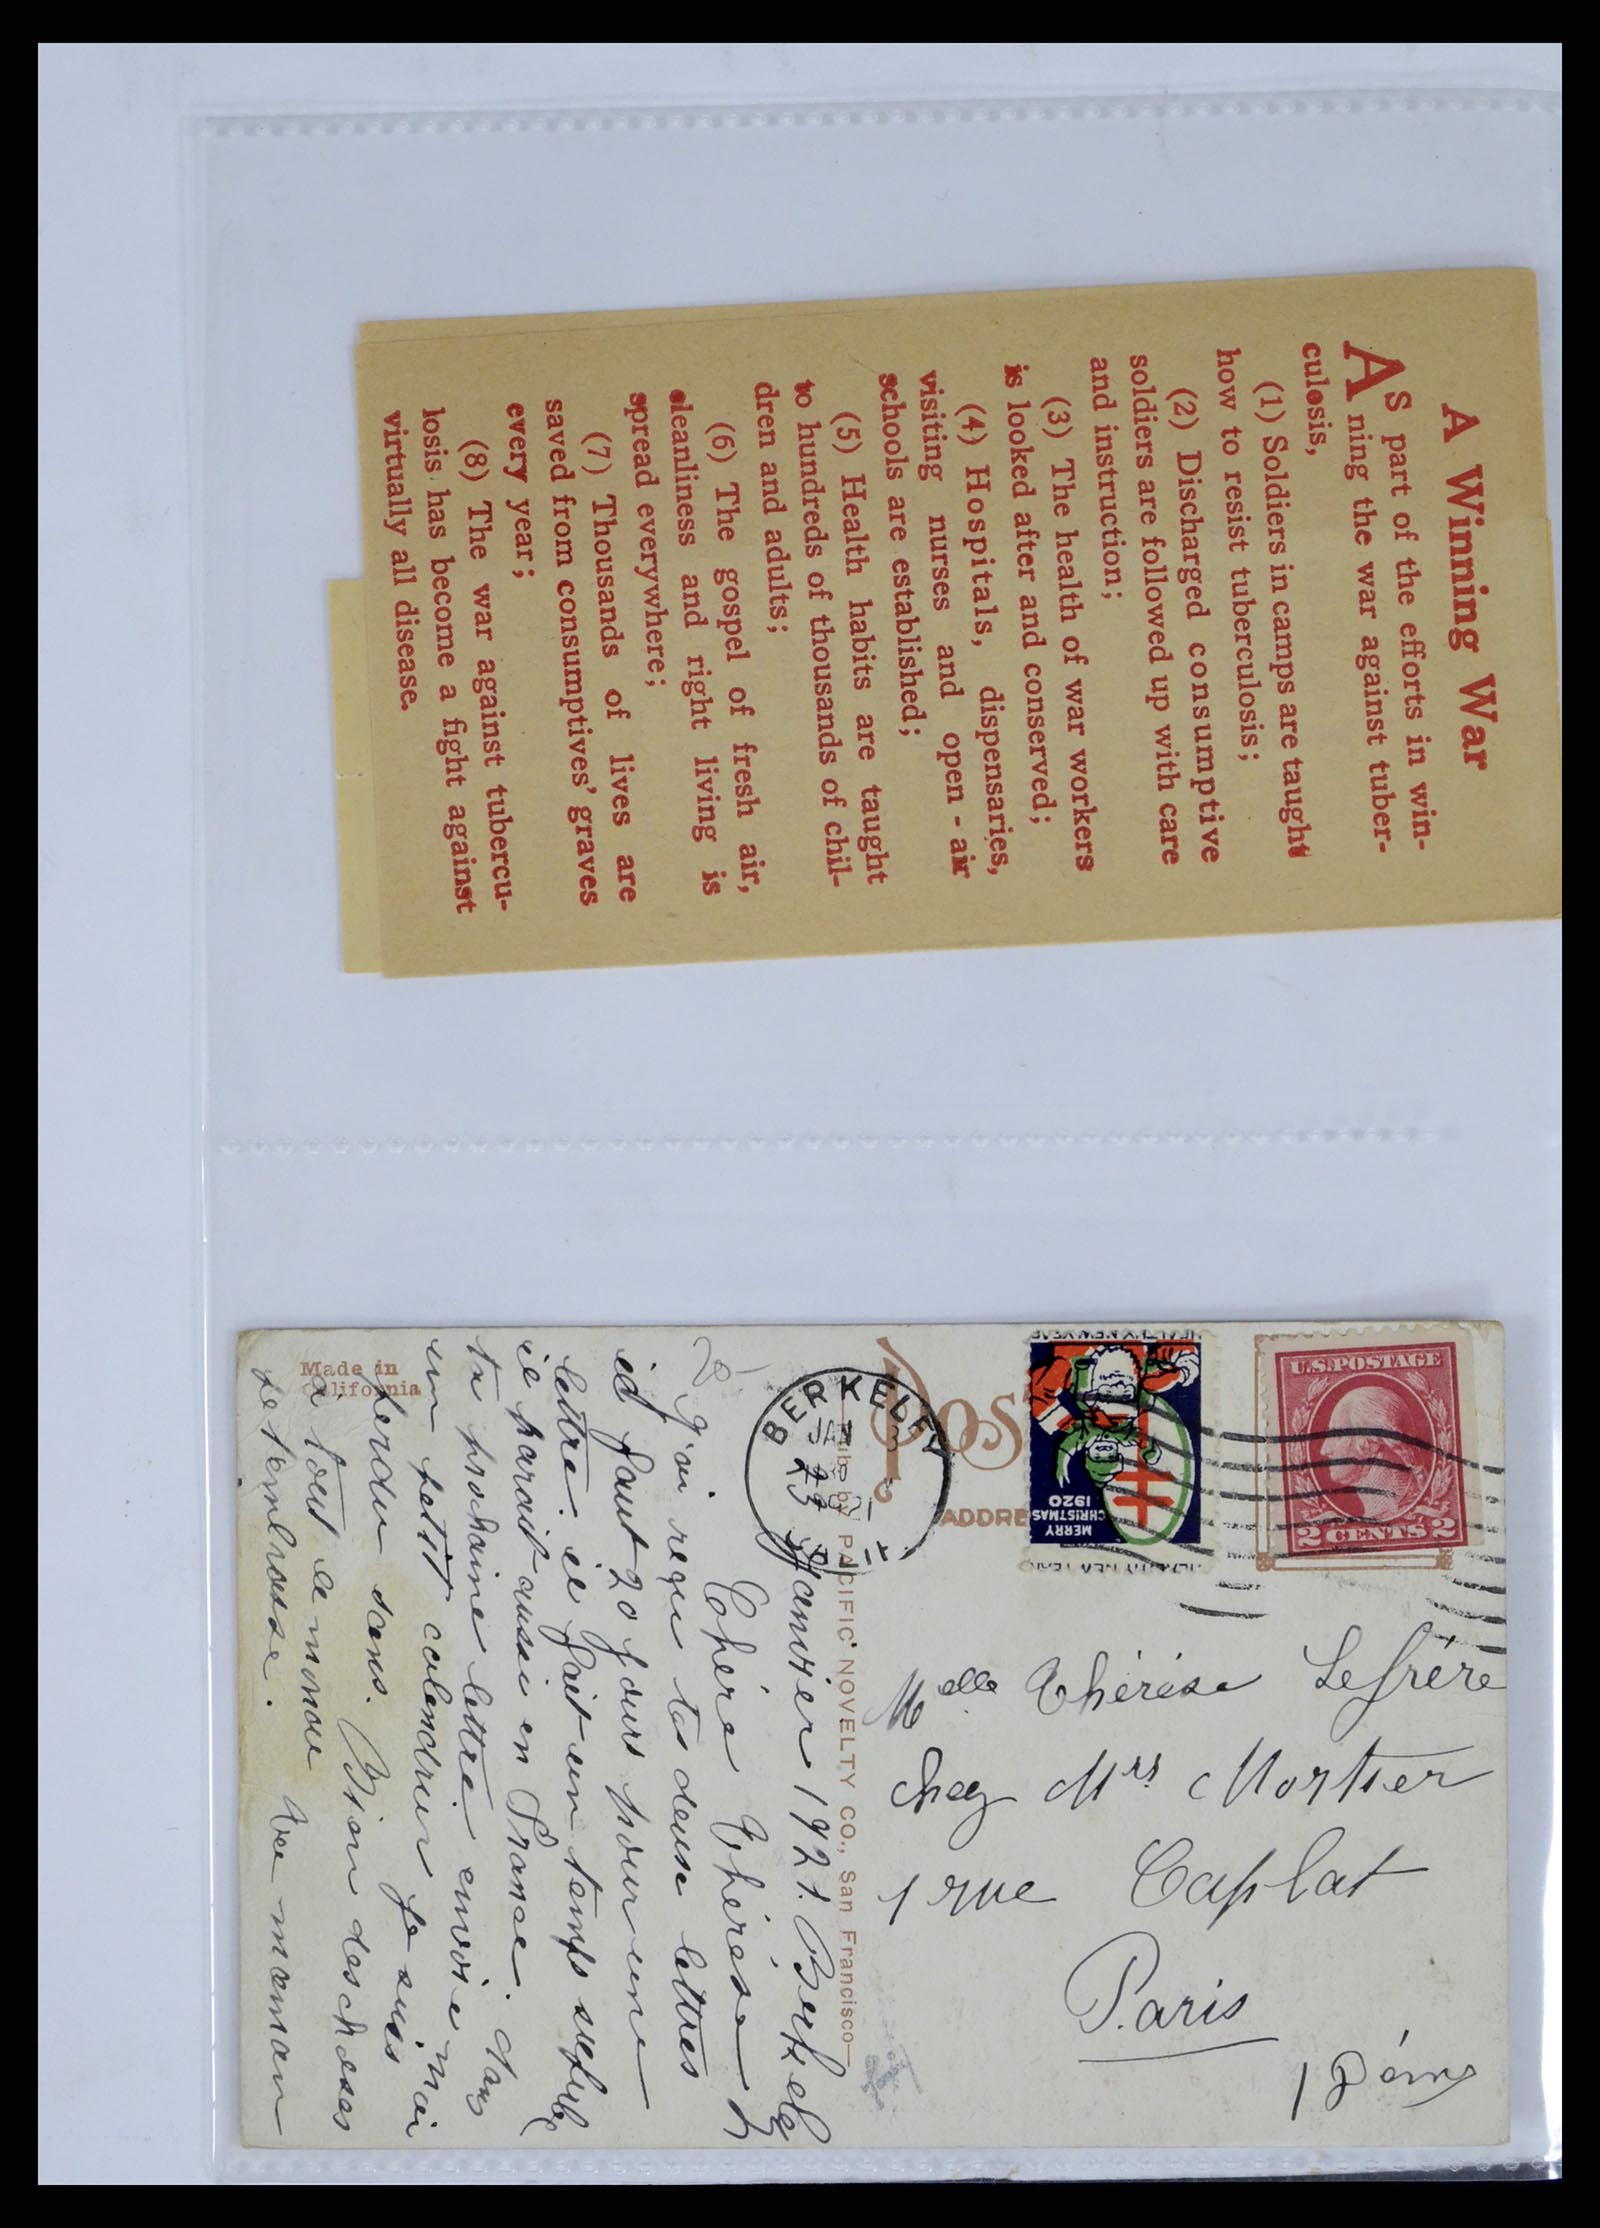 A Winning War
AS part of the efforts in win-
ning the war against tuber-
culosis,
(1) Soldiers in camps are taught
how to resist tuberculosis;
(2) Discharged consumptive
soldiers are followed up with care
and instruction;
(3) The health of war workers
is looked after and conserved;
(4) Hospitals, dispensaries,
visiting nurses and open-air
schools are established;
(5) Health habits are taught
to hundreds of thousands of chil-
dren and adults;
(6) The gospel of fresh air,
cleanliness and right living is
spread everywhere;
(7) Thousands of lives are
saved from consumptives' graves
every year;
(8) The war against tubercu-
losis has become a fight against
virtually all disease.
U.S. POSTAGE
2 CENTS 2
MERRY
CHRISTMAS
1920
HEALTHY NEW YEAR
POS
ADDRE
BERKELEY
JAN
3
1921
Pub. by PACIFIC NOVELTY CO., San Francisco
Made in
California
Melle Thérèse Lefrère
chez Mrs Mortier
1 rue Caplat
Paris
18ème
23 Janvier 1921. Berkeley
Chère Thérèse
J'ai reçu tes deux lettres
il faut 20 jours pour une
lettre. il fait un temps superbe
il parait aussi en France. dans
ta prochaine lettre envoie moi
un petit calendrier je suis
perdu sans. Bien des choses
à tout le monde
Ta maman
te t'embrasse.